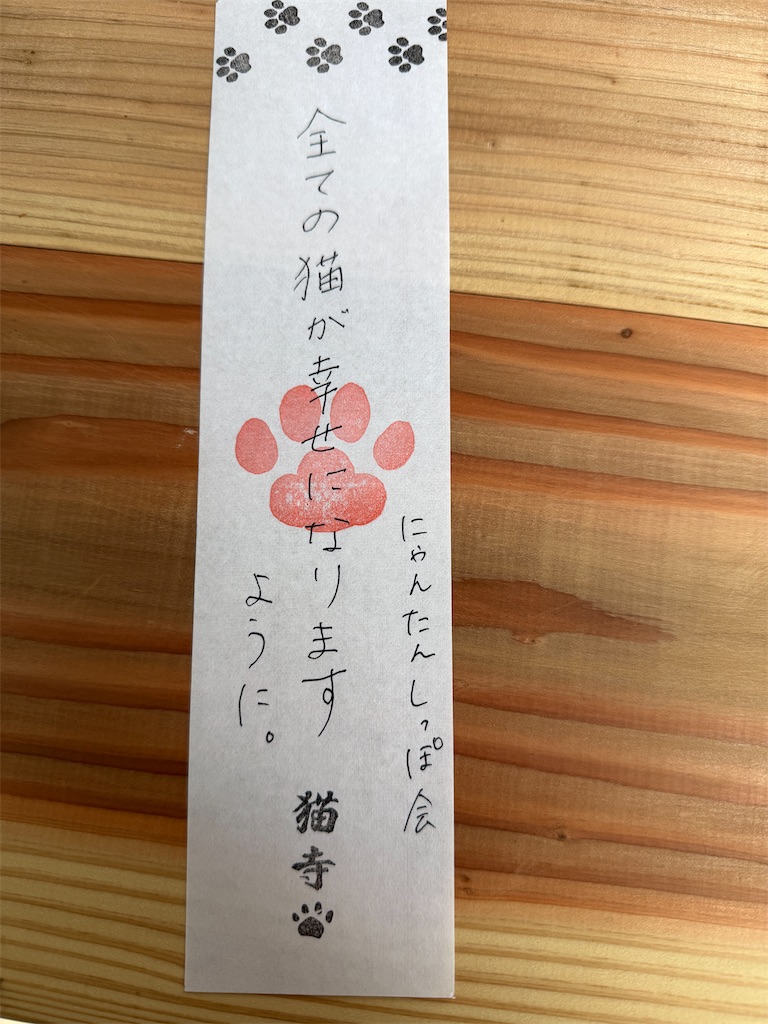 にゃんたんしっぽ会
全ての猫が幸せになります
ように。
猫寺